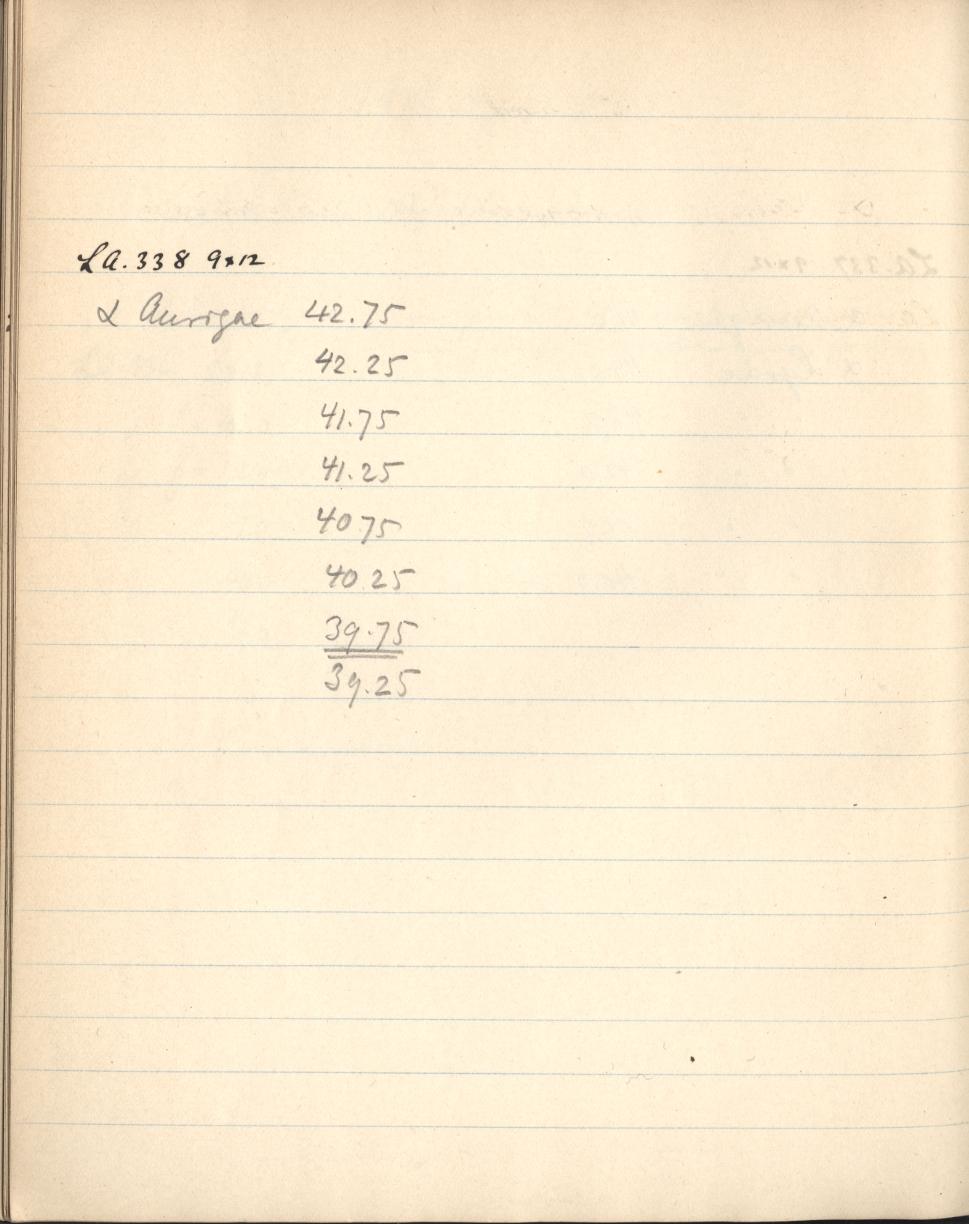 LA. 338 9x12
α Aurigae 42.75
42.25
41.75
41.25
40 75
40.25
39.75
39.25